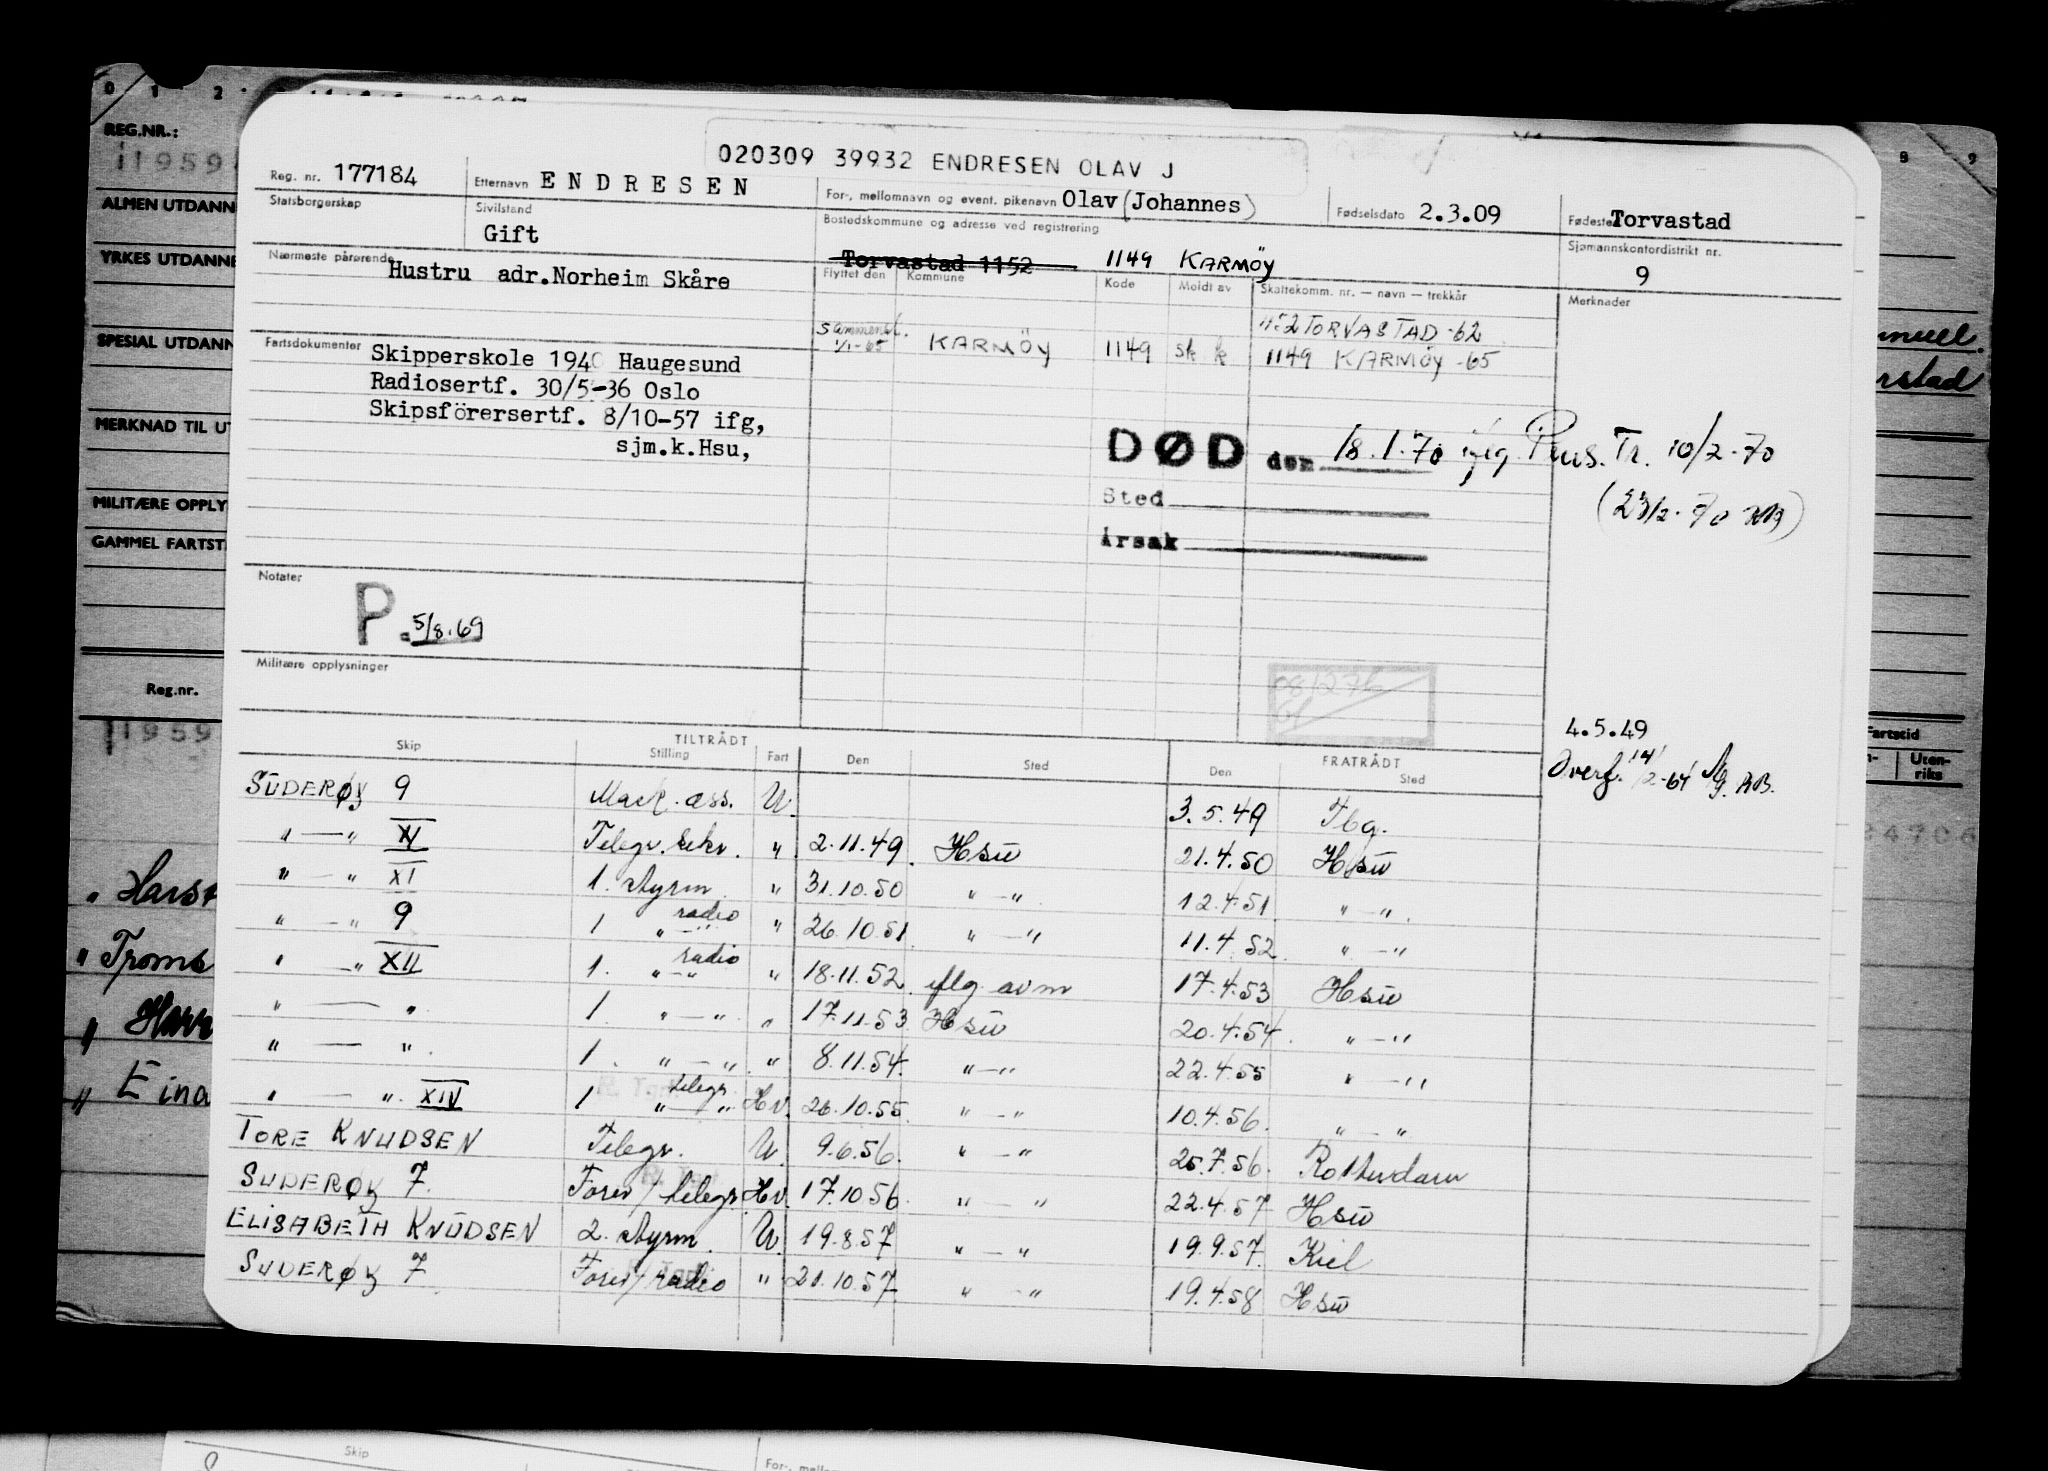 0 1 2
9 9
REG.NR.:
11959
ALMEN UTDANN
YRKES UTDANNE
SPESIAL UTDANN
MERKNAD TIL UT
MILITÆRE OPPLY
GAMMEL FARTST
Reg.nr.
11959
020309 39932 ENDRESEN OLAV J
Reg. nr. 177184 Etternavn ENDRESEN For-, mellomnavn og event. pikenavn Olav (Johannes) Fødselsdato 2.3.09 Fødeste Torvastad
Statsborgerskap Sivilstand Gift Bostedskommune og adresse ved registrering Torvastad 1152 1149 KARMÖY Sjømannskontordistrikt nr. 9
Nærmeste pårørende Hustru adr.Norheim Skåre
Flyttet den Kommune Kode Meldt av Skattekomm. nr. — navn — trekkår Merknader
1152 TORVASTAD -62
Sammensl. 1/1-65 KARMÖY 1149 sk k 1149 KARMÖY -65
Fartsdokumenter Skipperskole 1940 Haugesund
Radiosertf. 30/5-36 Oslo
Skipsförersertf. 8/10-57 ifg,
sjm.k.Hsu,
DØD den 18.1.70 iflg. Pens.Tr. 10/2-70
Sted (23/2-70 )
Årsak
Notater
P. 5/8.69
Militære opplysninger
4.5.49
Overf. 14/2-61
TILTRÅDT FRATRÅDT
Skip Stilling Fart Den Sted Den Sted
SUDERØY 9 Mask. ass. U. 3.5.49 Tbg.
" — " XI Telegr. sekr. " 2.11.49. Hsu 21.4.50 Hsu
" — " XI 1. styrm. " 31.10.50 " — " 12.4.51. " — "
" — " 9 1 " radio " 26.10.51. " — " 11.4.52. " — "
" — " XII 1. " — " radio " 18.11.52. iflg avm 17.4.53 Hsu
" — " 1 " — " " 17.11.53 Hsu 20.4.54. " — "
" — " 1. " — " " 8.11.54. " — " 22.4.55 " — "
" — " XIV 1 " — " telegr. Hv. 26.10.55. " — " 10.4.56. " — "
TORE KNUDSEN Telegr. U. 9.6.56. " — " 25.7.56. Rotterdam
SUDERØY 7. Fører/telegr. Hv. 17.10.56 " — " 22.4.57 Hsu
ELISABETH KNUDSEN 2. styrm. U. 19.8.57 " — " 19.9.57. Kiel
SUDERØY 7 Fører/radio " 21.10.57 " — " 19.4.58 Hsu
Fartstid
Uten-
riks
24706
" Harst
" Troms
" Harr
" Eina
Skip
For-, mello